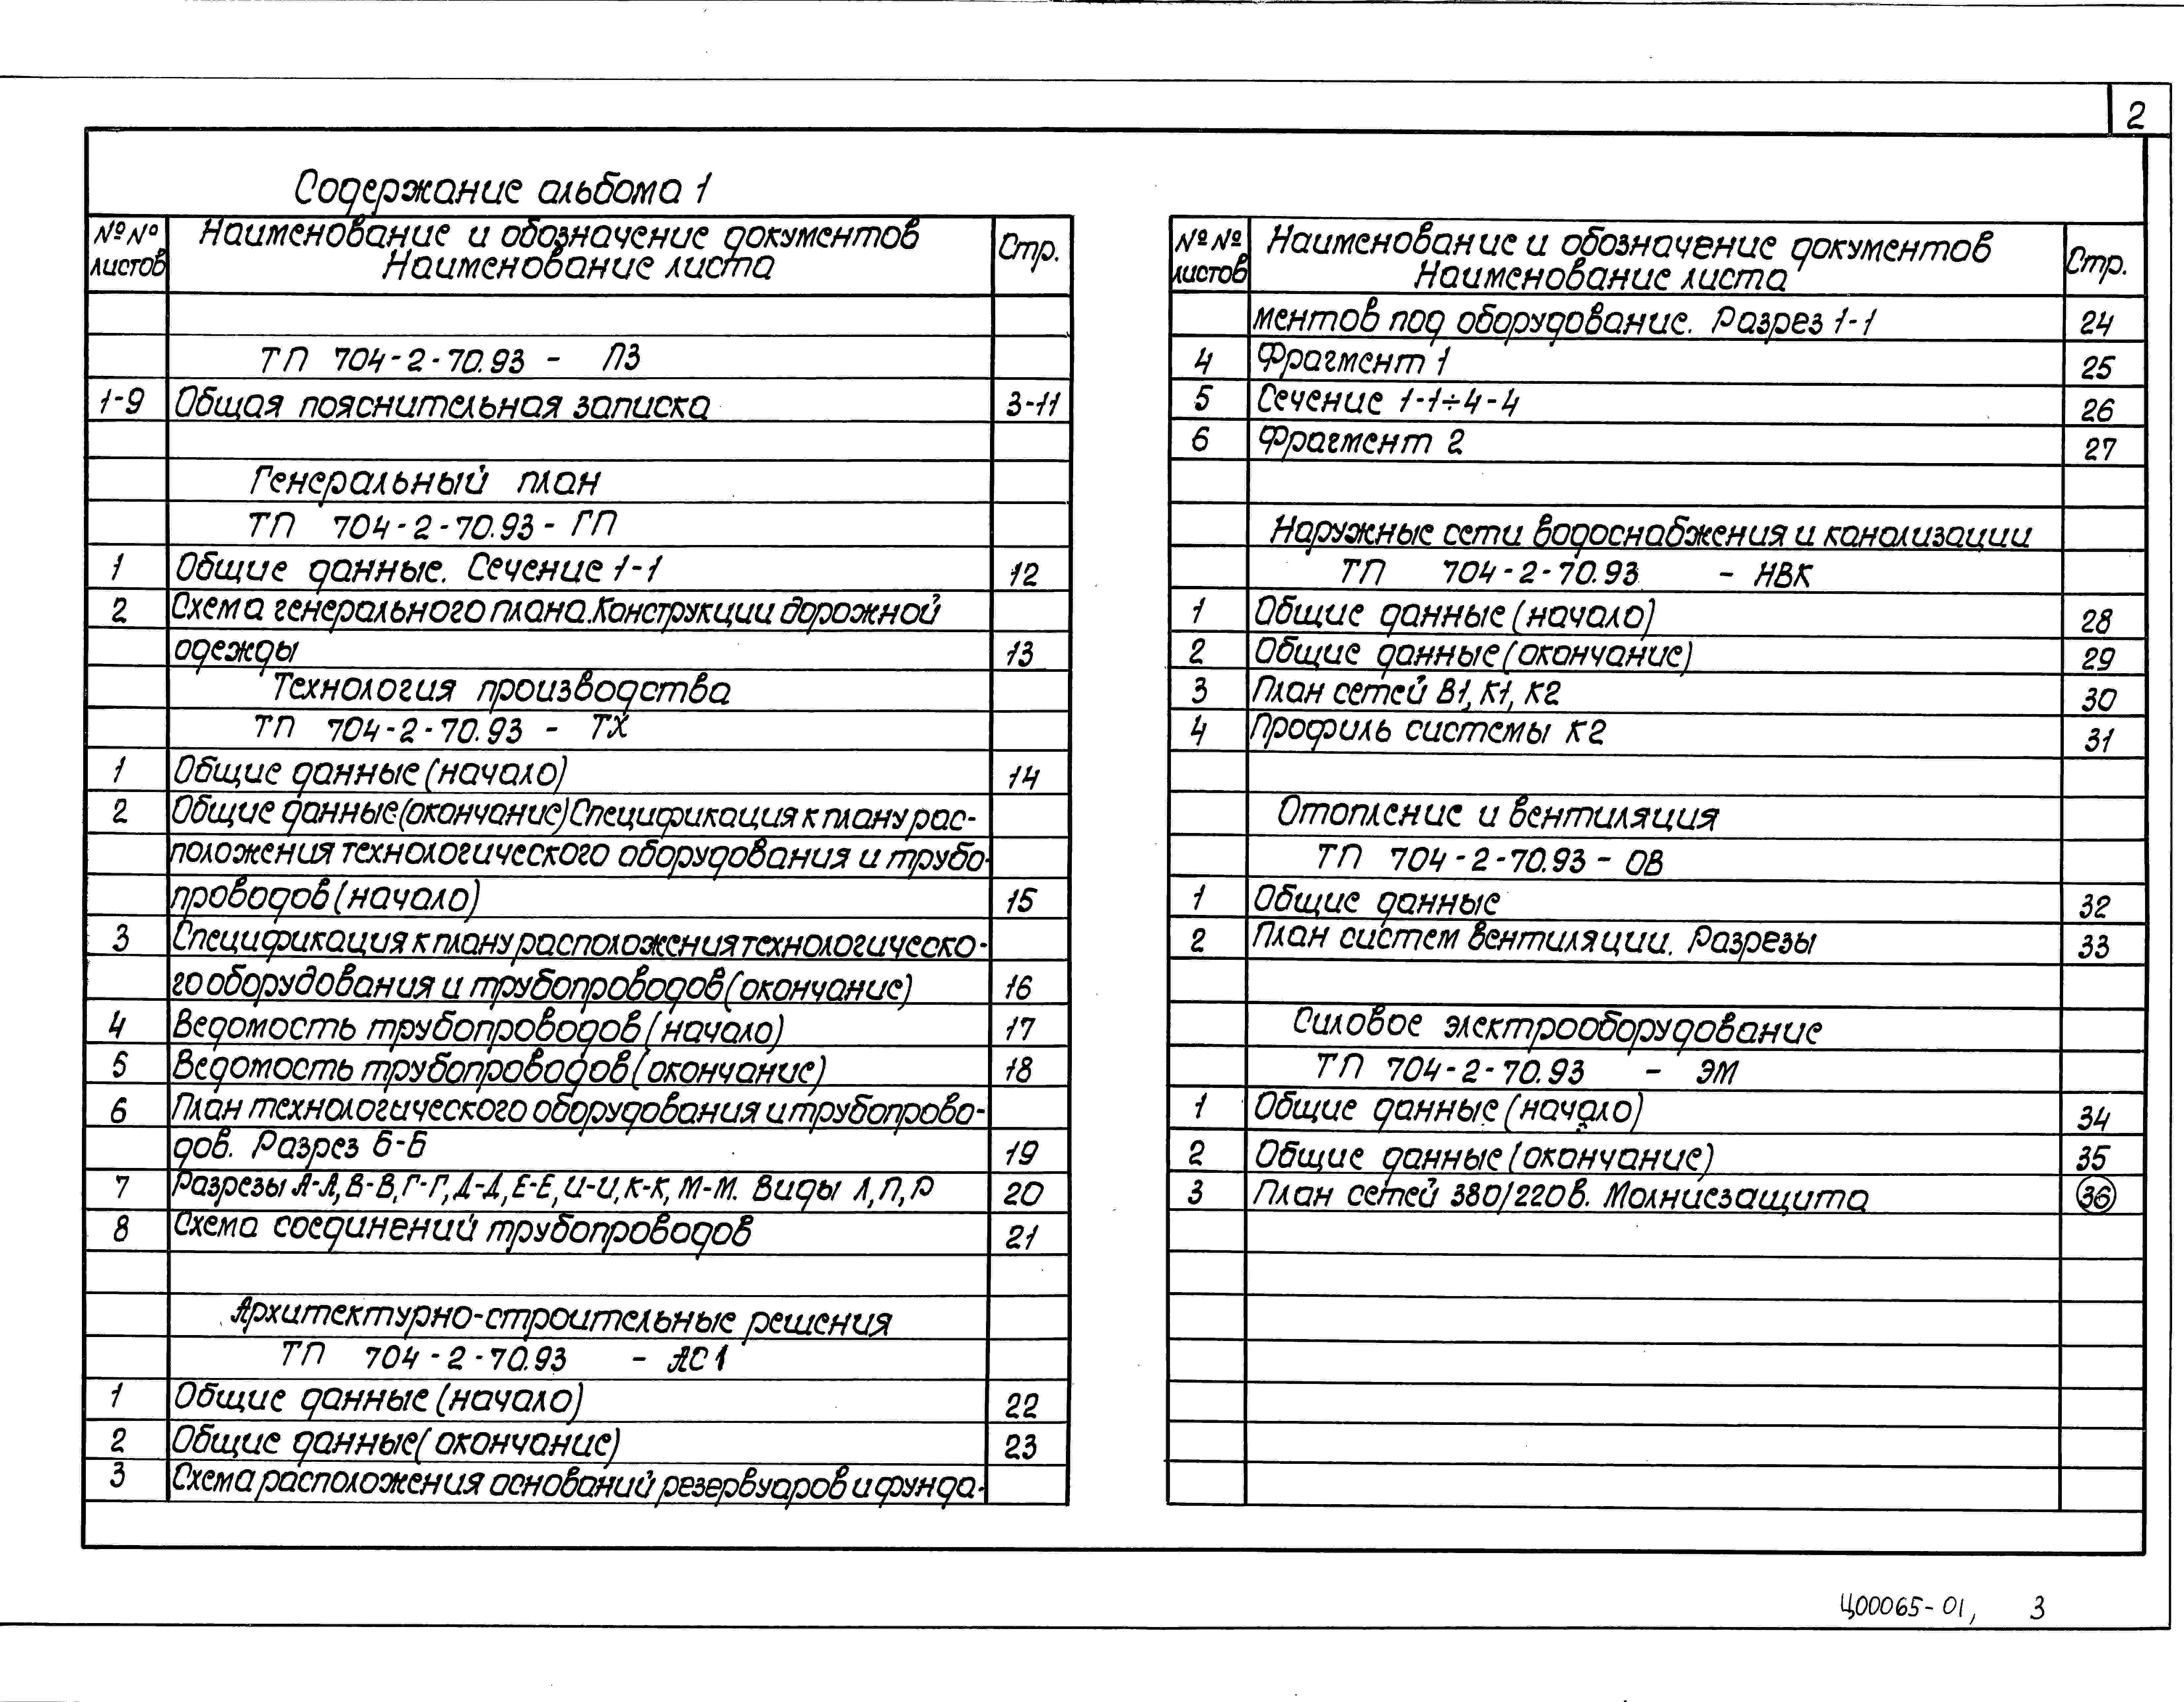 2
Содержание альбома 1
№№ листов Наименование и обозначение документов Наименование листа Стр.
ТП 704-2-70.93 - ПЗ
1-9 Общая пояснительная записка 3-11
Генеральный план
ТП 704-2-70.93 - ГП
1 Общие данные. Сечение 1-1 12
2 Схема генерального плана. Конструкции дорожной
одежды 13
Технология производства
ТП 704-2-70.93 - ТХ
1 Общие данные (начало) 14
2 Общие данные (окончание) Спецификация к плану рас-
положения технологического оборудования и трубо-
проводов (начало) 15
3 Спецификация к плану расположения технологическо-
го оборудования и трубопроводов (окончание) 16
4 Ведомость трубопроводов (начало) 17
5 Ведомость трубопроводов (окончание) 18
6 План технологического оборудования и трубопрово-
дов. Разрез Б-Б 19
7 Разрезы А-А, В-В, Г-Г, Д-Д, Е-Е, И-И, К-К, М-М. Виды Л, П, Р 20
8 Схема соединений трубопроводов 21
Архитектурно-строительные решения
ТП 704-2-70.93 - АС1
1 Общие данные (начало) 22
2 Общие данные (окончание) 23
3 Схема расположения оснований резервуаров и фунда-
№№ листов Наименование и обозначение документов Наименование листа Стр.
ментов под оборудование. Разрез 1-1 24
4 Фрагмент 1 25
5 Сечение 1-1÷4-4 26
6 Фрагмент 2 27
Наружные сети водоснабжения и канализации
ТП 704-2-70.93 - НВК
1 Общие данные (начало) 28
2 Общие данные (окончание) 29
3 План сетей В1, К1, К2 30
4 Профиль системы К2 31
Отопление и вентиляция
ТП 704-2-70.93 - ОВ
1 Общие данные 32
2 План систем вентиляции. Разрезы 33
Силовое электрооборудование
ТП 704-2-70.93 - ЭМ
1 Общие данные (начало) 34
2 Общие данные (окончание) 35
3 План сетей 380/220в. Молниезащита 36
Ц00065-01, 3